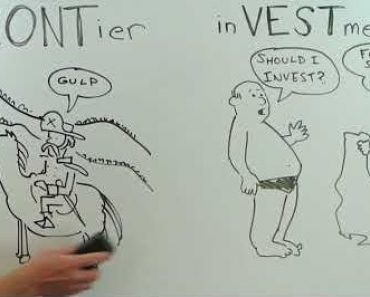 ONTier
inVESTme
GULP
SHOULD I
INVEST?